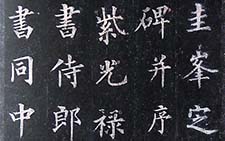 圭峯定
碑并序
紫光禄
書侍郎
書同中